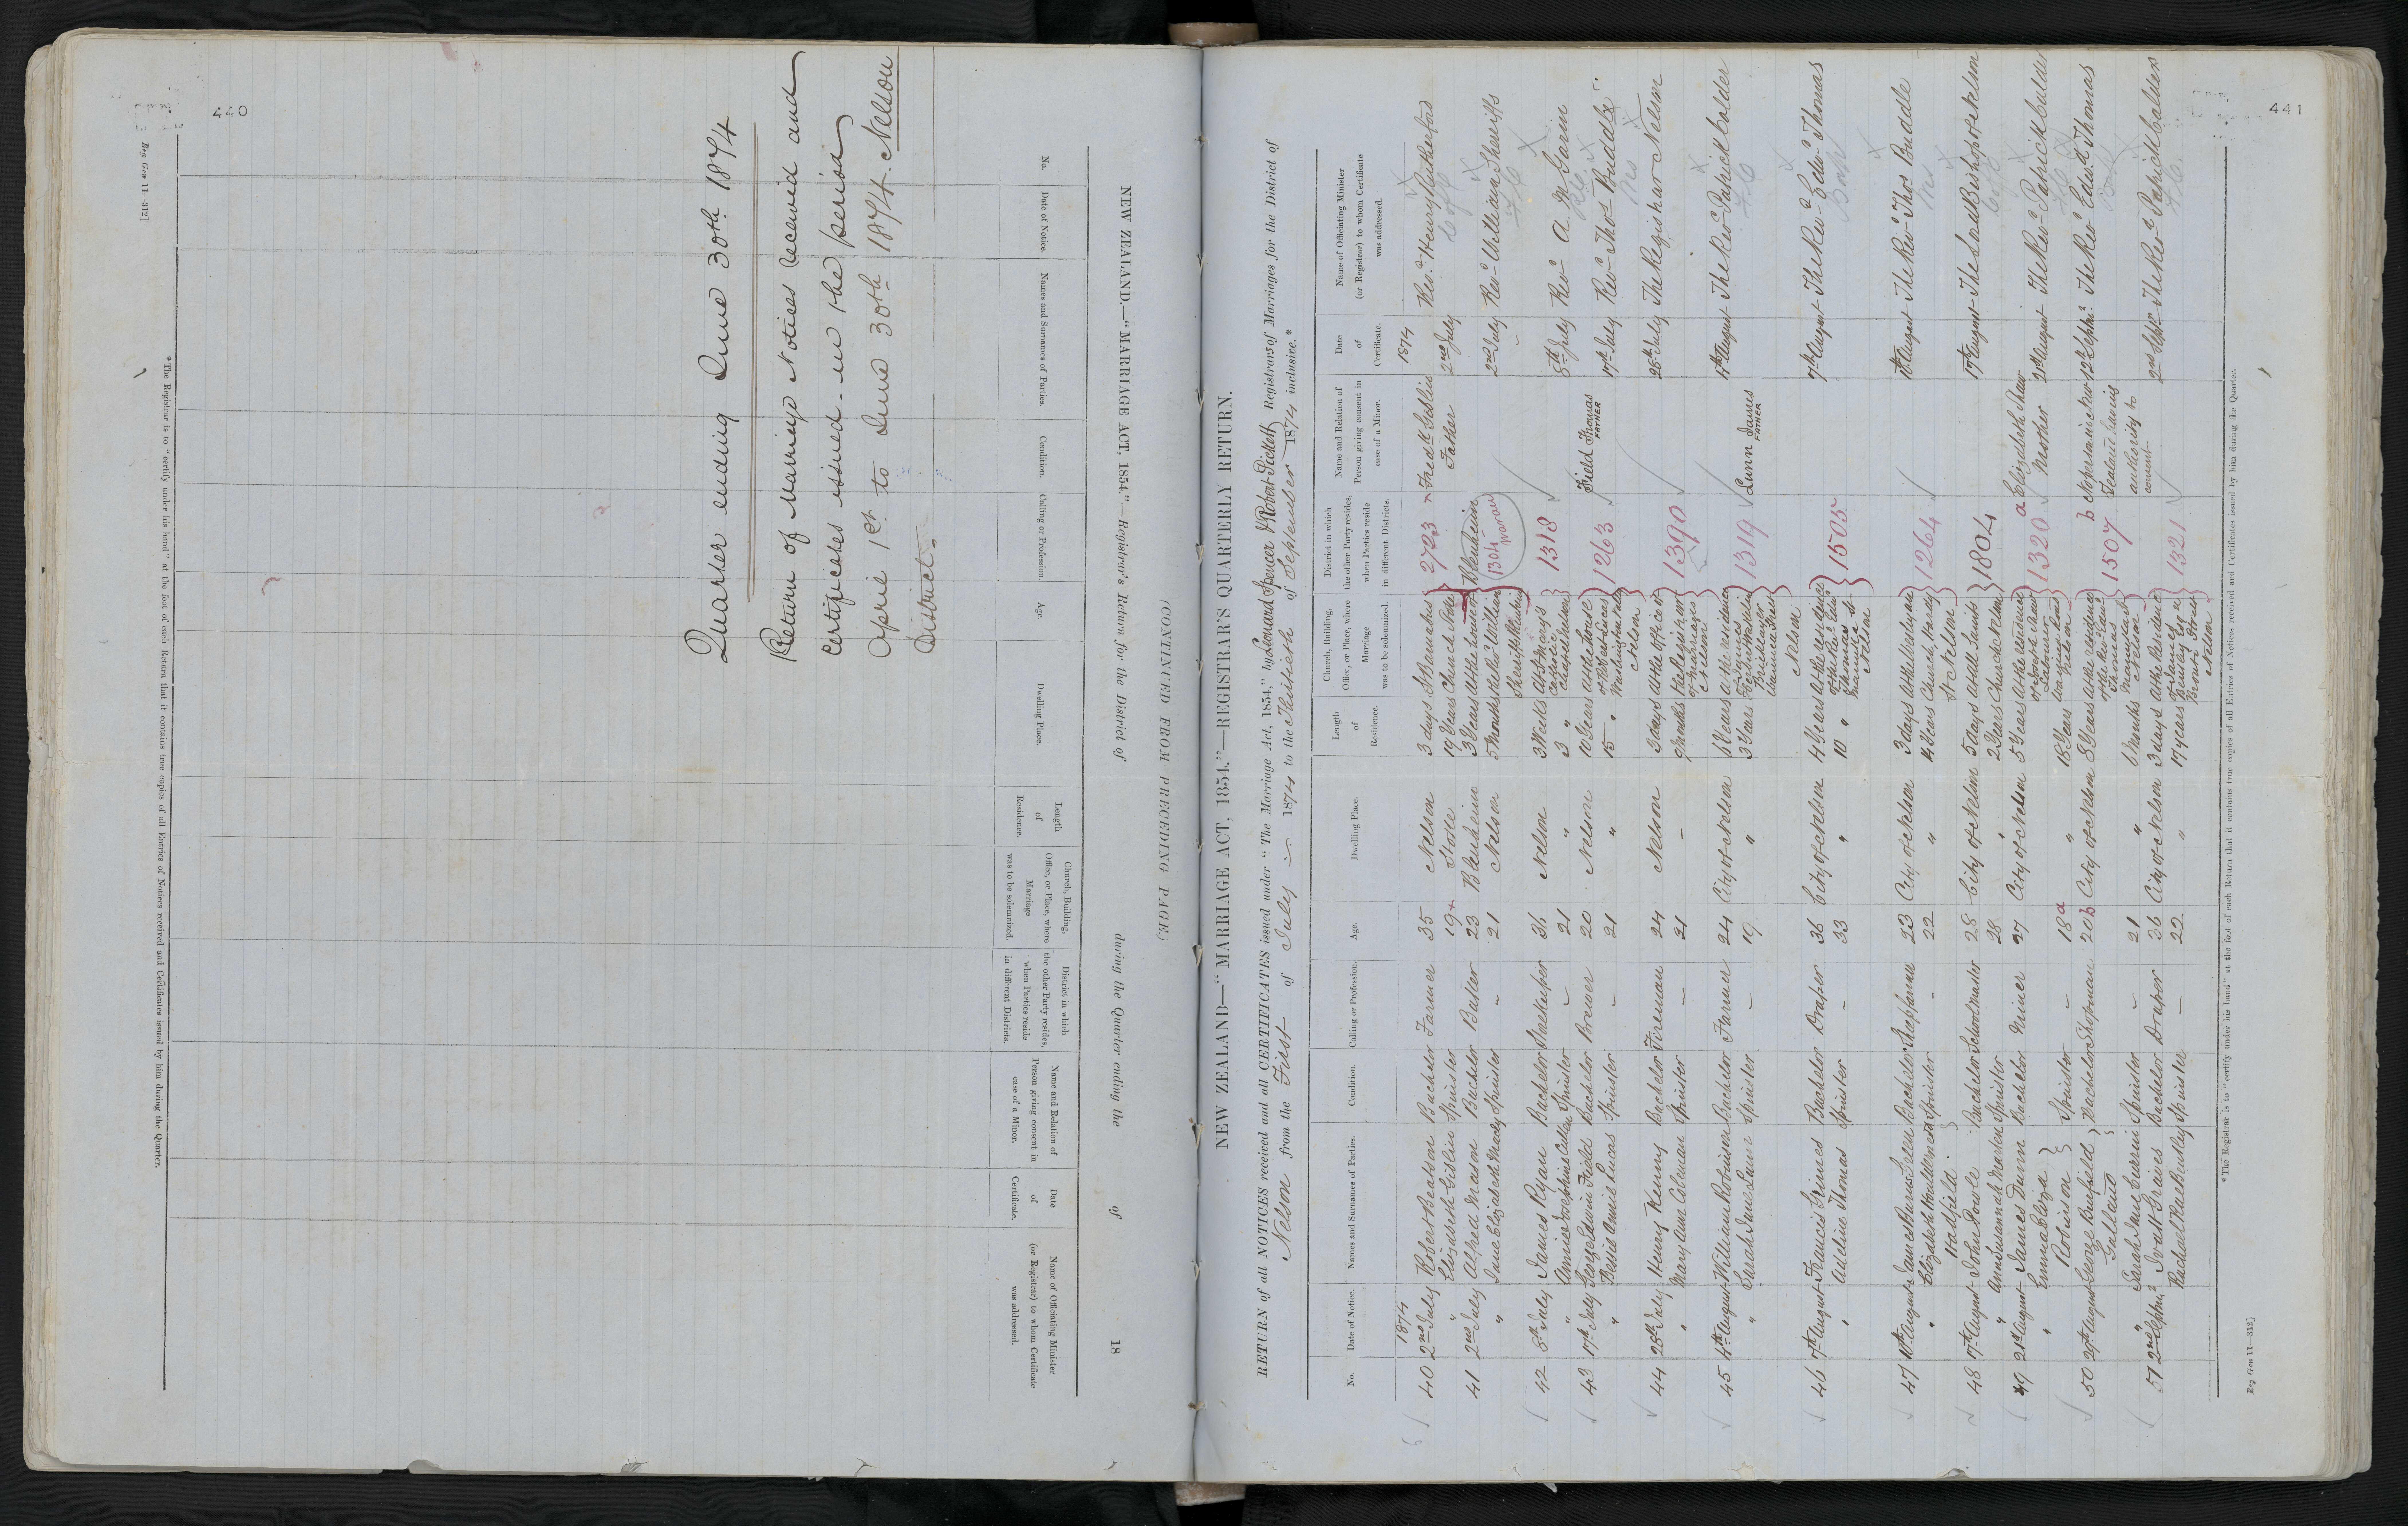 440
Reg Gen 11—312]
Quarter ending June 30th 1874
Return of Marriage Notices received and
Certificates issued in the period
April 1st to June 30th 1874. Nelson
District.
NEW ZEALAND.—"MARRIAGE ACT, 1854."—Registrar's Return for the District of during the Quarter ending the of 18
(CONTINUED FROM PRECEDING PAGE.)
No.
Date of Notice.
Names and Surnames of Parties.
Condition.
Calling or Profession.
Age.
Dwelling Place.
Length of Residence.
Church, Building, Office, or Place, where Marriage was to be solemnized.
District in which the other Party resides, when Parties reside in different Districts.
Name and Relation of Person giving consent in case of a Minor.
Date of Certificate.
Name of Officiating Minister (or Registrar) to whom Certificate was addressed.
*The Registrar is to "certify under his hand" at the foot of each Return that it contains true copies of all Entries of Notices received and Certificates issued by him during the Quarter.
441
NEW ZEALAND—"MARRIAGE ACT, 1854."—REGISTRAR'S QUARTERLY RETURN.
RETURN of all NOTICES received and all CERTIFICATES issued under "The Marriage Act, 1854," by Leonard Spencer & Robert Pickett Registrars of Marriages for the District of
Nelson from the First of July 1874 to the Thirtieth of September 1874 inclusive.*
No.
Date of Notice.
Names and Surnames of Parties.
Condition.
Calling or Profession.
Age.
Dwelling Place.
Length of Residence.
Church, Building, Office, or Place, where Marriage was to be solemnized.
District in which the other Party resides, when Parties reside in different Districts.
Name and Relation of Person giving consent in case of a Minor.
Date of Certificate.
Name of Officiating Minister (or Registrar) to whom Certificate was addressed.
1874 1874
40 2nd July Robert Beatson Bachelor Farmer 35 Nelson 3 days St Barnabas 2723 Fredk Gislin 2nd July Revd Henry
" Elizabeth Gislin Spinster 19 Stoke 19 Years Church Stoke Father
41 2nd July Alfred Mason Bachelor Baker 23 Blenheim 3 Years At the house of Blenheim 2nd July Revd William Sherriffs
" Jane Elizabeth Mandy Spinster - 21 Nelson 5 months the Revd William 1304 Wairau
42 8th July James Ryan Bachelor 36 Nelson 3 Weeks At St Mary's 1318 8th July Revd A M Garin
" Annie Josephine Cullen Spinster - 21 " 3 " Catholic Chapel Nelson
43 17th July George Edwin Field Bachelor Brewer 20 Nelson 10 Years At the house 1263 Field Thomas FATHER 17th July Revd Thos Buddle
" Bessie Annis Lucas Spinster - 21 " 15 " Nelson
44 28th July Henry Kenny Bachelor Fireman 24 Nelson 3 days At the Office of 1390 28th July The Registrar Nelson
" Mary Ann Coleman Spinster - 21 - 9 months the Registrar of Marriages Nelson
45 4th August William Robinson Bachelor Farmer 24 City of Nelson 6 Years At the residence 1319 Lunn James FATHER 4th August The Revd Patrick Calder
" Sarah Jane Lunn Spinster - 19 " 3 Years Nelson
46 7th August Francis Grimes Bachelor Draper 36 City of Nelson 4 Years At the residence 1505 7th August The Revd Edwd Thomas
" Thomas Spinster - 33 " 10 " of the Revd Edwd Thomas Nelson
47 10th August James Green Bachelor 23 City of Nelson 3 days At the Wesleyan 1264 10th August The Revd Thos Buddle
" Elizabeth Hadfield Spinster - 22 " 4 Years Church, Hardy St Nelson
48 17th August John Bachelor Schoolmaster 28 City of Nelson 5 days At All Saints 1804 17th August The Lord Bishop of Nelson
" Ann Susannah Spinster 28 2 Years Church Nelson
49 21st August James Dunn Bachelor Miner 27 City of Nelson 5 Years At the residence 1320 a Elizabeth Shaw Mother 21st August The Revd Patrick Calder
" Emma Eliza Robinson Spinster - 18 a " 18 Years of Joseph Shaw Labourer Nelson
50 29th August George Bachelor Shopman 20 b City of Nelson 8 Years At the residence 1507 b No person in New Zealand having authority to consent 12th Septr The Revd Edwd Thomas
Sarah Jane Spinster - 21 " 6 Months of the Revd Edwd Thomas Nelson
51 2nd Septr Graves Bachelor Draper 36 City of Nelson 3 days At the Residence 1321 2nd Septr The Revd Patrick Calder
Rachael Spinster - 22 " 17 Years of James Bronte Street Nelson
*The Registrar is to "certify under his hand" at the foot of each Return that it contains true copies of all Entries of Notices received and Certificates issued by him during the Quarter.
Reg Gen 11—312]